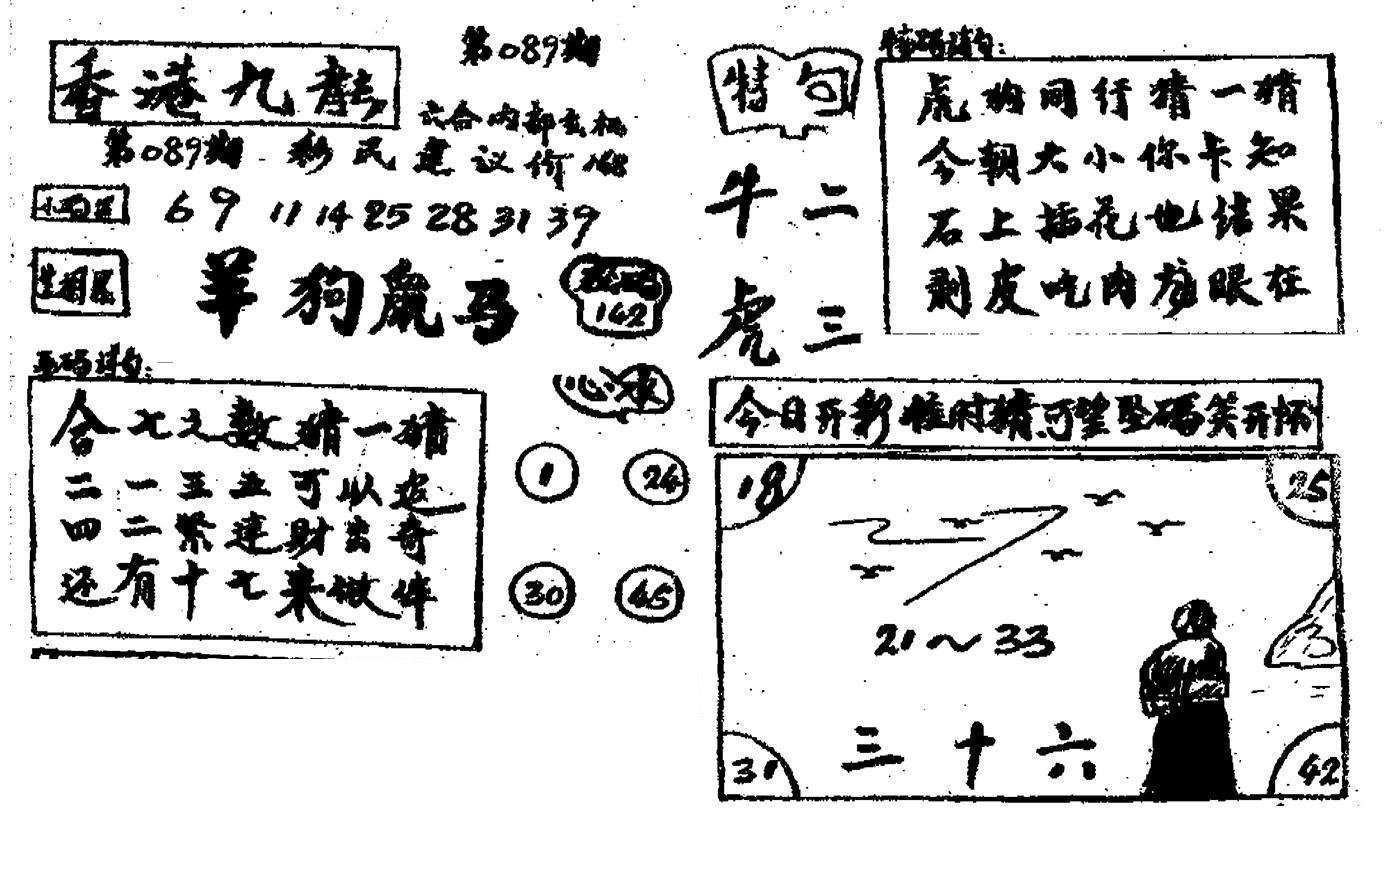 第089期
香港九龍
六合内部玄机
第089期 彩民建议价168
6 9 11 14 25 28 31 39
羊狗鼠马
162
合七之数猜一猜
二一三五可以追
四二紧连财出奇
还有十七来做伴
1 24
30 45
特句
牛二
虎三
特码诗句:
虎狗同行猜一猜
今朝大小你卡知
石上插花也结果
剥皮吃肉龙眼在
今日开彩 望 码笑开怀
18 25
21～33
三十六
31 42